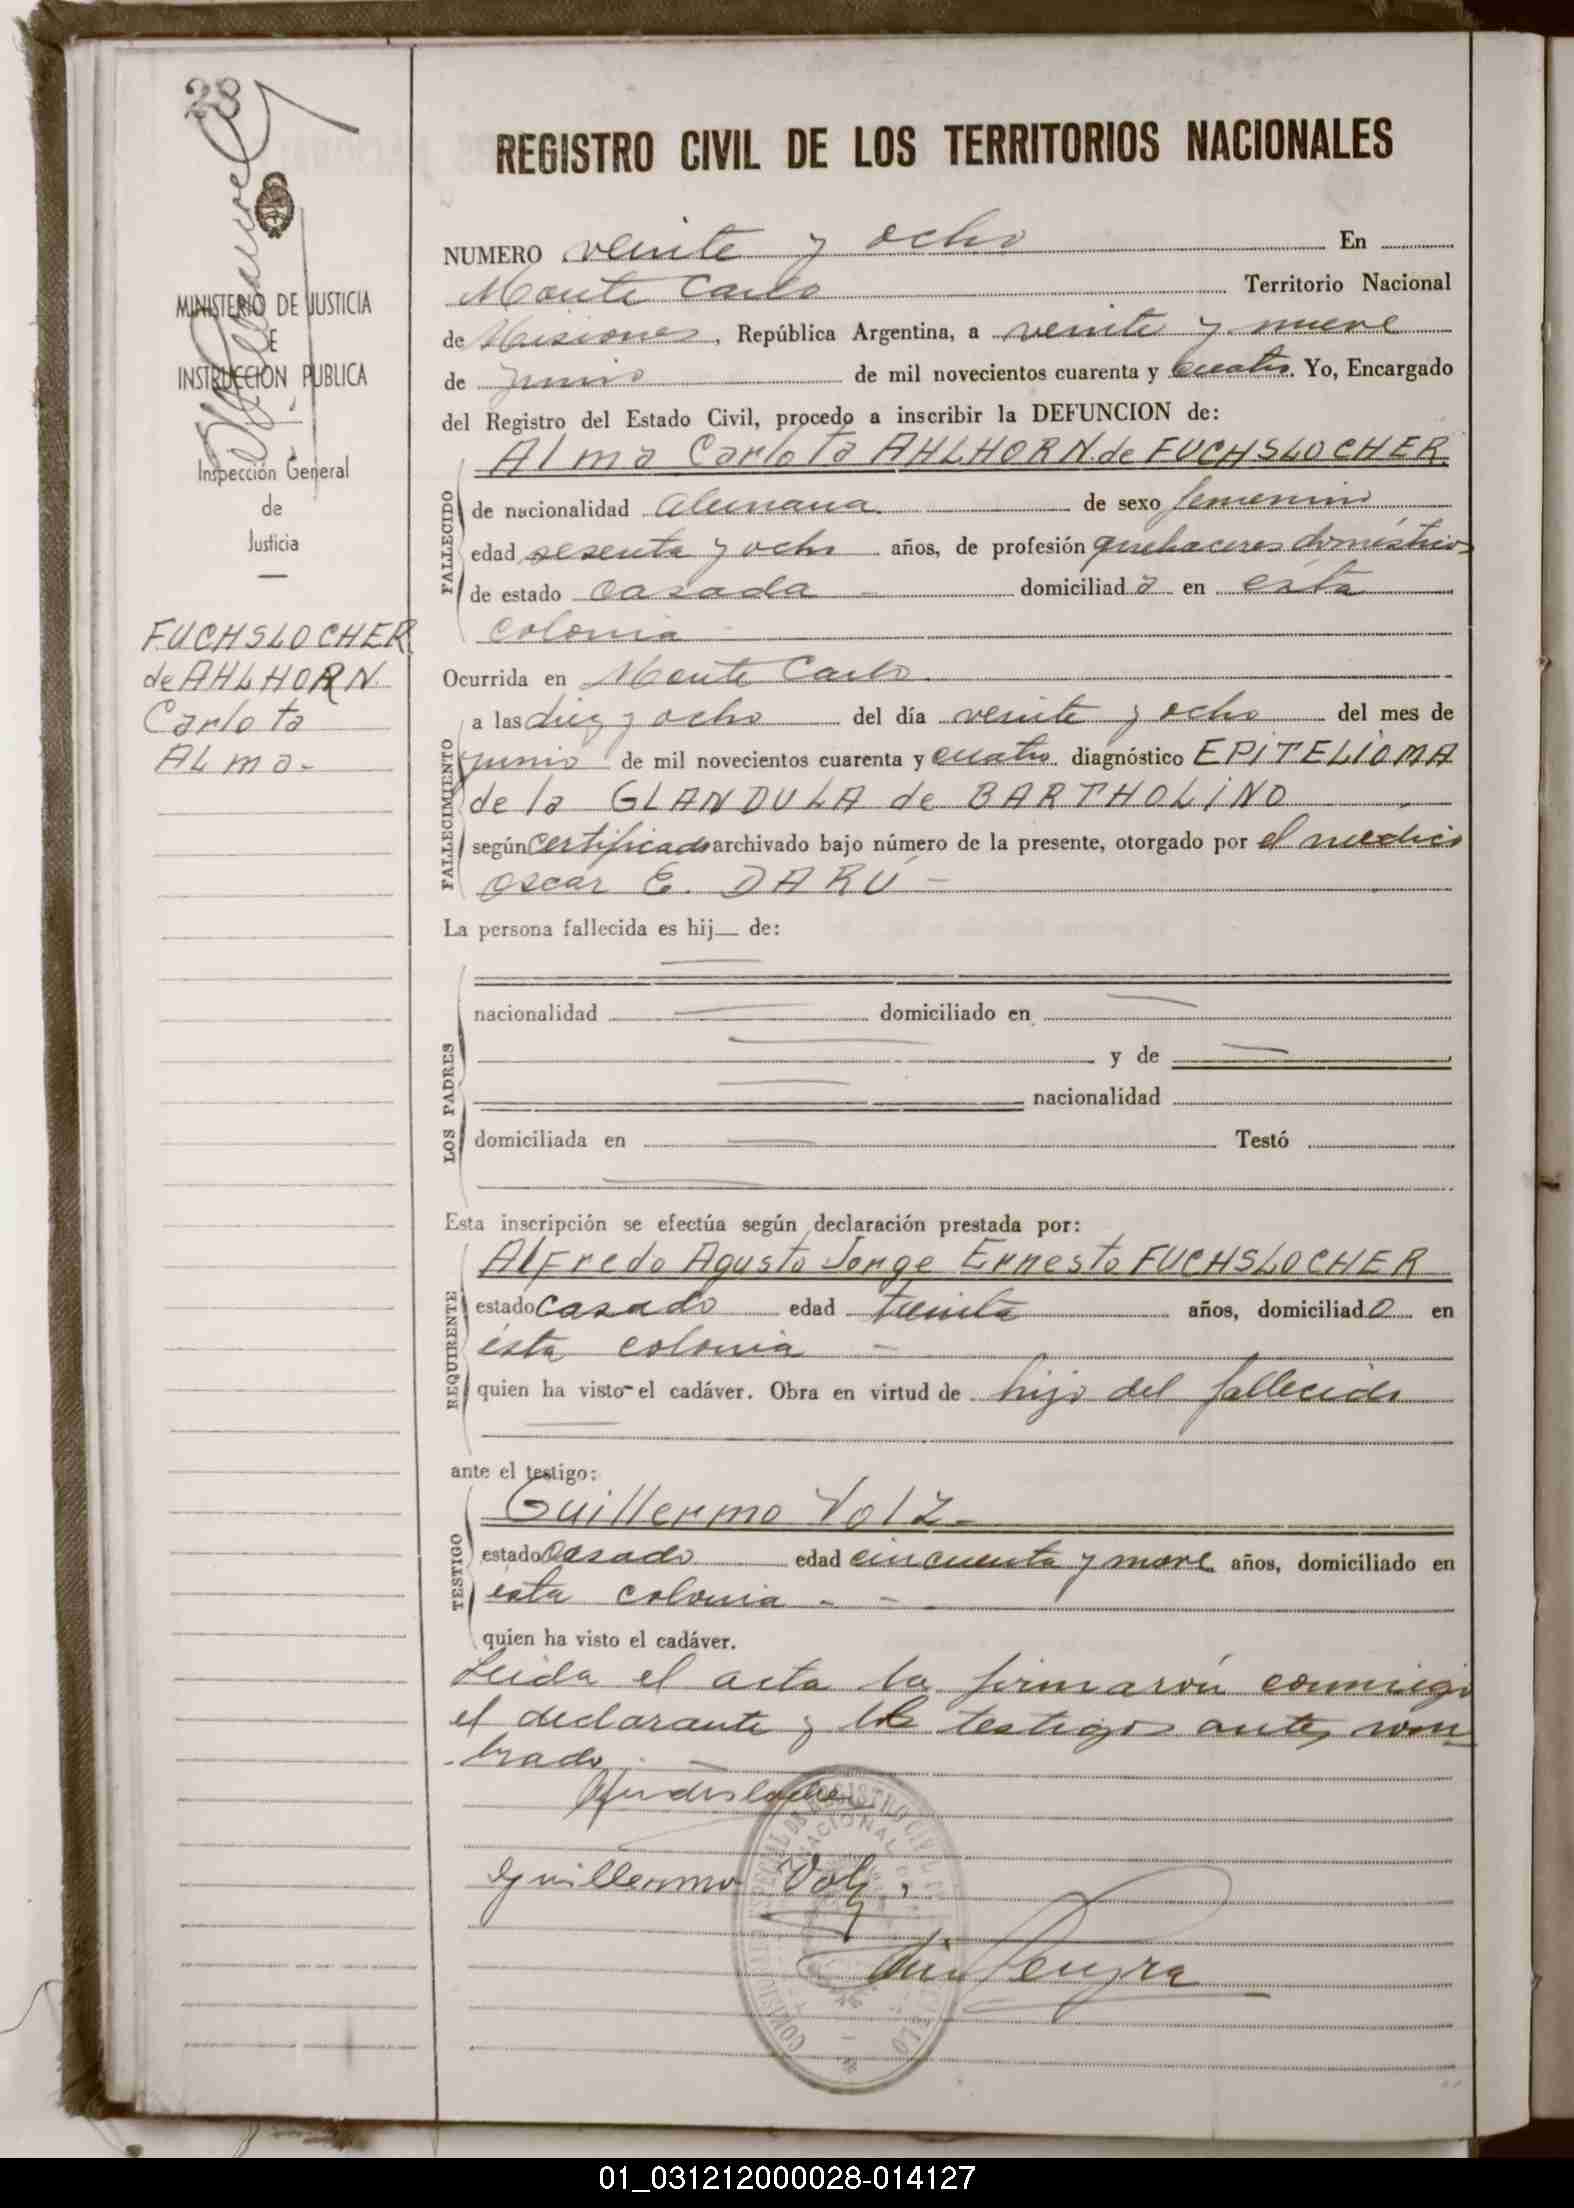 28
MINISTERIO DE JUSTICIA
E
INSTRUCCION PUBLICA
Inspección General
de
Justicia
FUCHSLOCHER
de AHLHORN
Carlota
ALma.-
REGISTRO CIVIL DE LOS TERRITORIOS NACIONALES
NUMERO veinte y ocho En
Monte Carlo Territorio Nacional
de Misiones, República Argentina, a veinte y nueve
de junio de mil novecientos cuarenta y cuatro. Yo, Encargado
del Registro del Estado Civil, procedo a inscribir la DEFUNCION de:
FALLECIDO
Alma Carlota AHLHORN de FUCHSLOCHER
de nacionalidad Alemana de sexo femenino
edad sesenta y ocho años, de profesión quehaceres domésticos
de estado casada - domiciliada en ésta
colonia
Ocurrida en Monte Carlo
FALLECIMIENTO
a las diez y ocho del día veinte y ocho del mes de
junio de mil novecientos cuarenta y cuatro diagnóstico EPITELIOMA
de la GLANDULA de BARTHOLINO
según certificado archivado bajo número de la presente, otorgado por el medico
Oscar E. DARÚ -
La persona fallecida es hij__ de:
LOS PADRES
nacionalidad — domiciliado en —
y de —
nacionalidad
domiciliada en — Testó
Esta inscripción se efectúa según declaración prestada por:
REQUIRENTE
Alfredo Agusto Jorge Ernesto FUCHSLOCHER
estado casado edad treinta años, domiciliado en
ésta colonia -
quien ha visto el cadáver. Obra en virtud de hijo del fallecido
ante el testigo:
TESTIGO
Guillermo Volz-
estado Casado edad cincuenta y nove años, domiciliado en
ésta colonia - -
quien ha visto el cadáver.
Leida el acta la firmarón conmigo
el declarante y el testigo antes nom-
brado. -
Guillermo Volz.
01_031212000028-014127